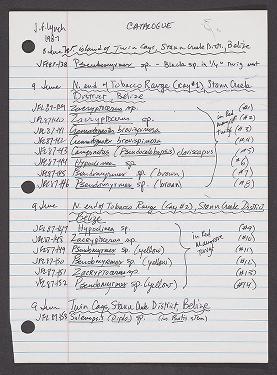 J.F. Lynch
1987
CATALOGUE
8 June E. island of Twin Cays, Stann Creek Distr., Belize
JFL87-138 Pseudomyrmex sp. - Black sp. in ¼" twig nest
9 June N. end of Tobacco Range (Cay #1) Stann Creek
District, Belize
JFL87-139 Zacryptocerus sp. (#1)
JFL87-140 Zacryptocerus sp. (#2)
JFL87-141 Crematogaster brevispinosa (#3)
JFL87-142 Crematogaster brevispinosa (#4)
JFL87-143 Camponotus (Pseudocolobopsis) (#5)
JFL87-144 Hypoclinea sp. (#6)
JFL87-145 Pseudomyrmex sp. (brown) (#7)
JFL87-146 Pseudomyrmex sp. (brown) (#8)
in Red
mangrove
twigs
9 June N. end of Tobacco Range (Cay #2) Stann Creek District,
Belize
JFL87-147 Hypoclinea sp. (#9)
JFL87-148 Zacryptocerus sp. (#10)
JFL87-149 Pseudomyrmex sp. (yellow) (#11)
JFL87-150 Pseudomyrmex sp. (yellow) (#12)
JFL87-151 Zacryptocerus sp. (#13)
JFL87-152 Pseudomyrmex sp. (yellow) (#14)
in Red
Mangrove
twigs
9 June Twin Cays, Stann Creek District, Belize
JFL87-153 Solenopsis sp. (in